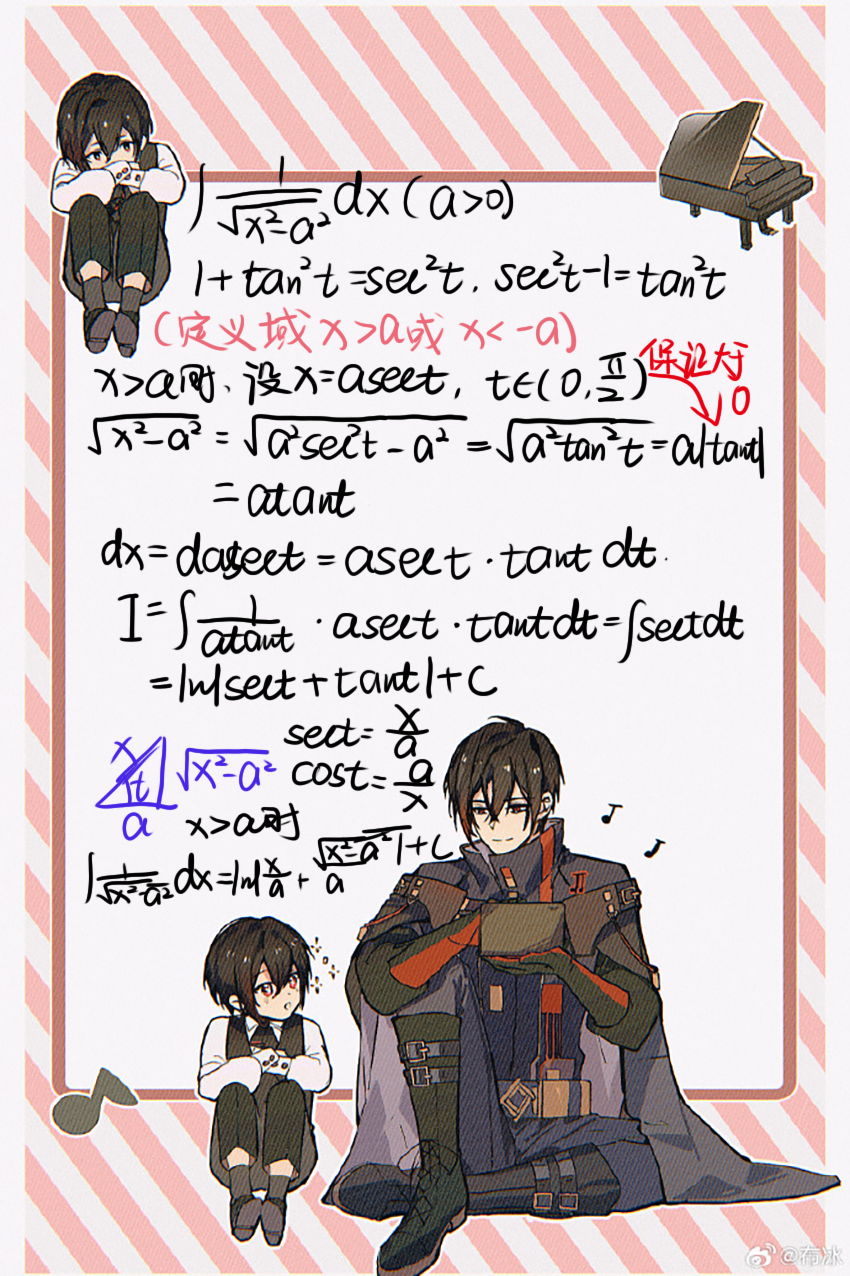 ∫ 1/√(x²-a²) dx (a>0)
1+tan²t=sec²t, sec²t-1=tan²t
(定义域 x>a或 x<-a)
x>a时、设x=asect, t∈(0,π/2) 保证大于0
√(x²-a²) = √(a²sec²t-a²) = √(a²tan²t) = a|tant|
=atant
dx=dasect=asect·tant dt.
I=∫ 1/(atant) ·asect·tantdt=∫sectdt
=ln|sect+tant|+C
sect=x/a
x t √(x²-a²) cost=a/x
a x>a时
∫ 1/√(x²-a²) dx=ln|x/a+√(x²-a²)/a|+C
@布冰